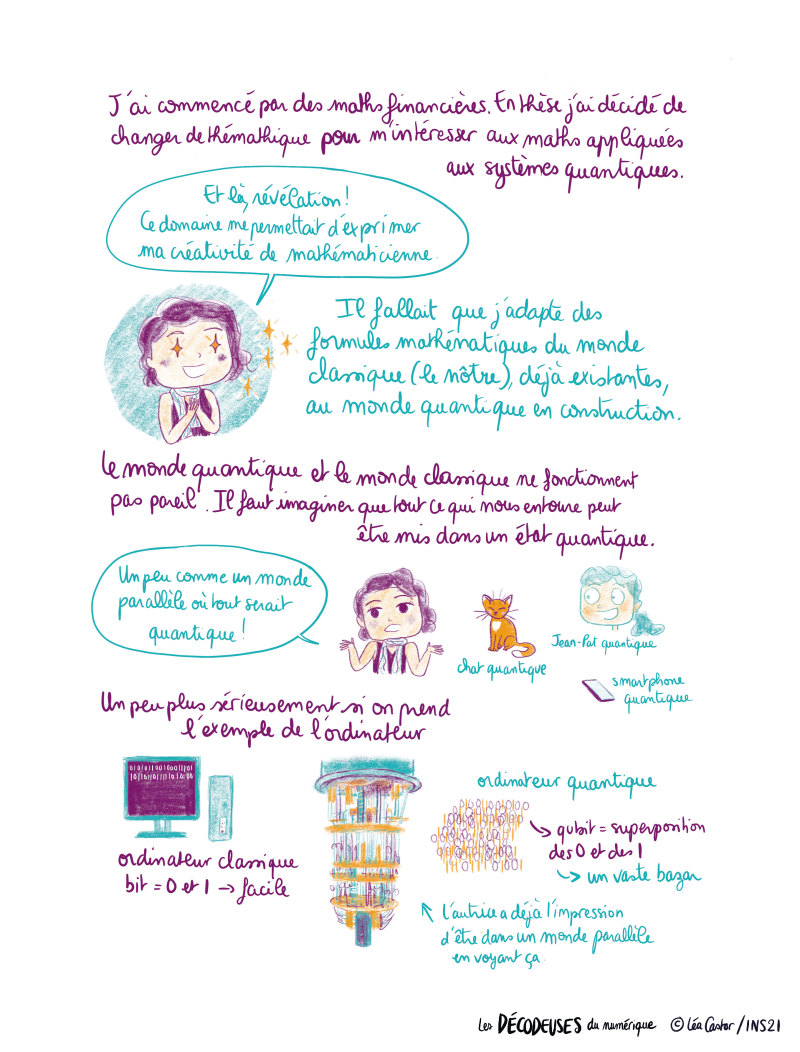 J'ai commencé par des maths financières. En thèse j'ai décidé de
changer de thémathique pour m'intéresser aux maths appliquées
aux systèmes quantiques.
Et là, révélation !
Ce domaine me permettait d'exprimer
ma créativité de mathématicienne.
Il fallait que j'adapte des
formules mathématiques du monde
classique (le nôtre), déjà existantes,
au monde quantique en construction.
Le monde quantique et le monde classique ne fonctionnent
pas pareil. Il faut imaginer que tout ce qui nous entoure peut
être mis dans un état quantique.
Un peu comme un monde
parallèle où tout serait
quantique !
chat quantique
Jean-Pat quantique
smartphone
quantique
Un peu plus sérieusement si on prend
l'exemple de l'ordinateur
ordinateur classique
bit = 0 et 1 → facile
ordinateur quantique
qubit = superposition
des 0 et des 1
un vaste bazar
l'autrice a déjà l'impression
d'être dans un monde parallèle
en voyant ça.
Les DÉCODEUSES du numérique © Léa Castor / INS2I